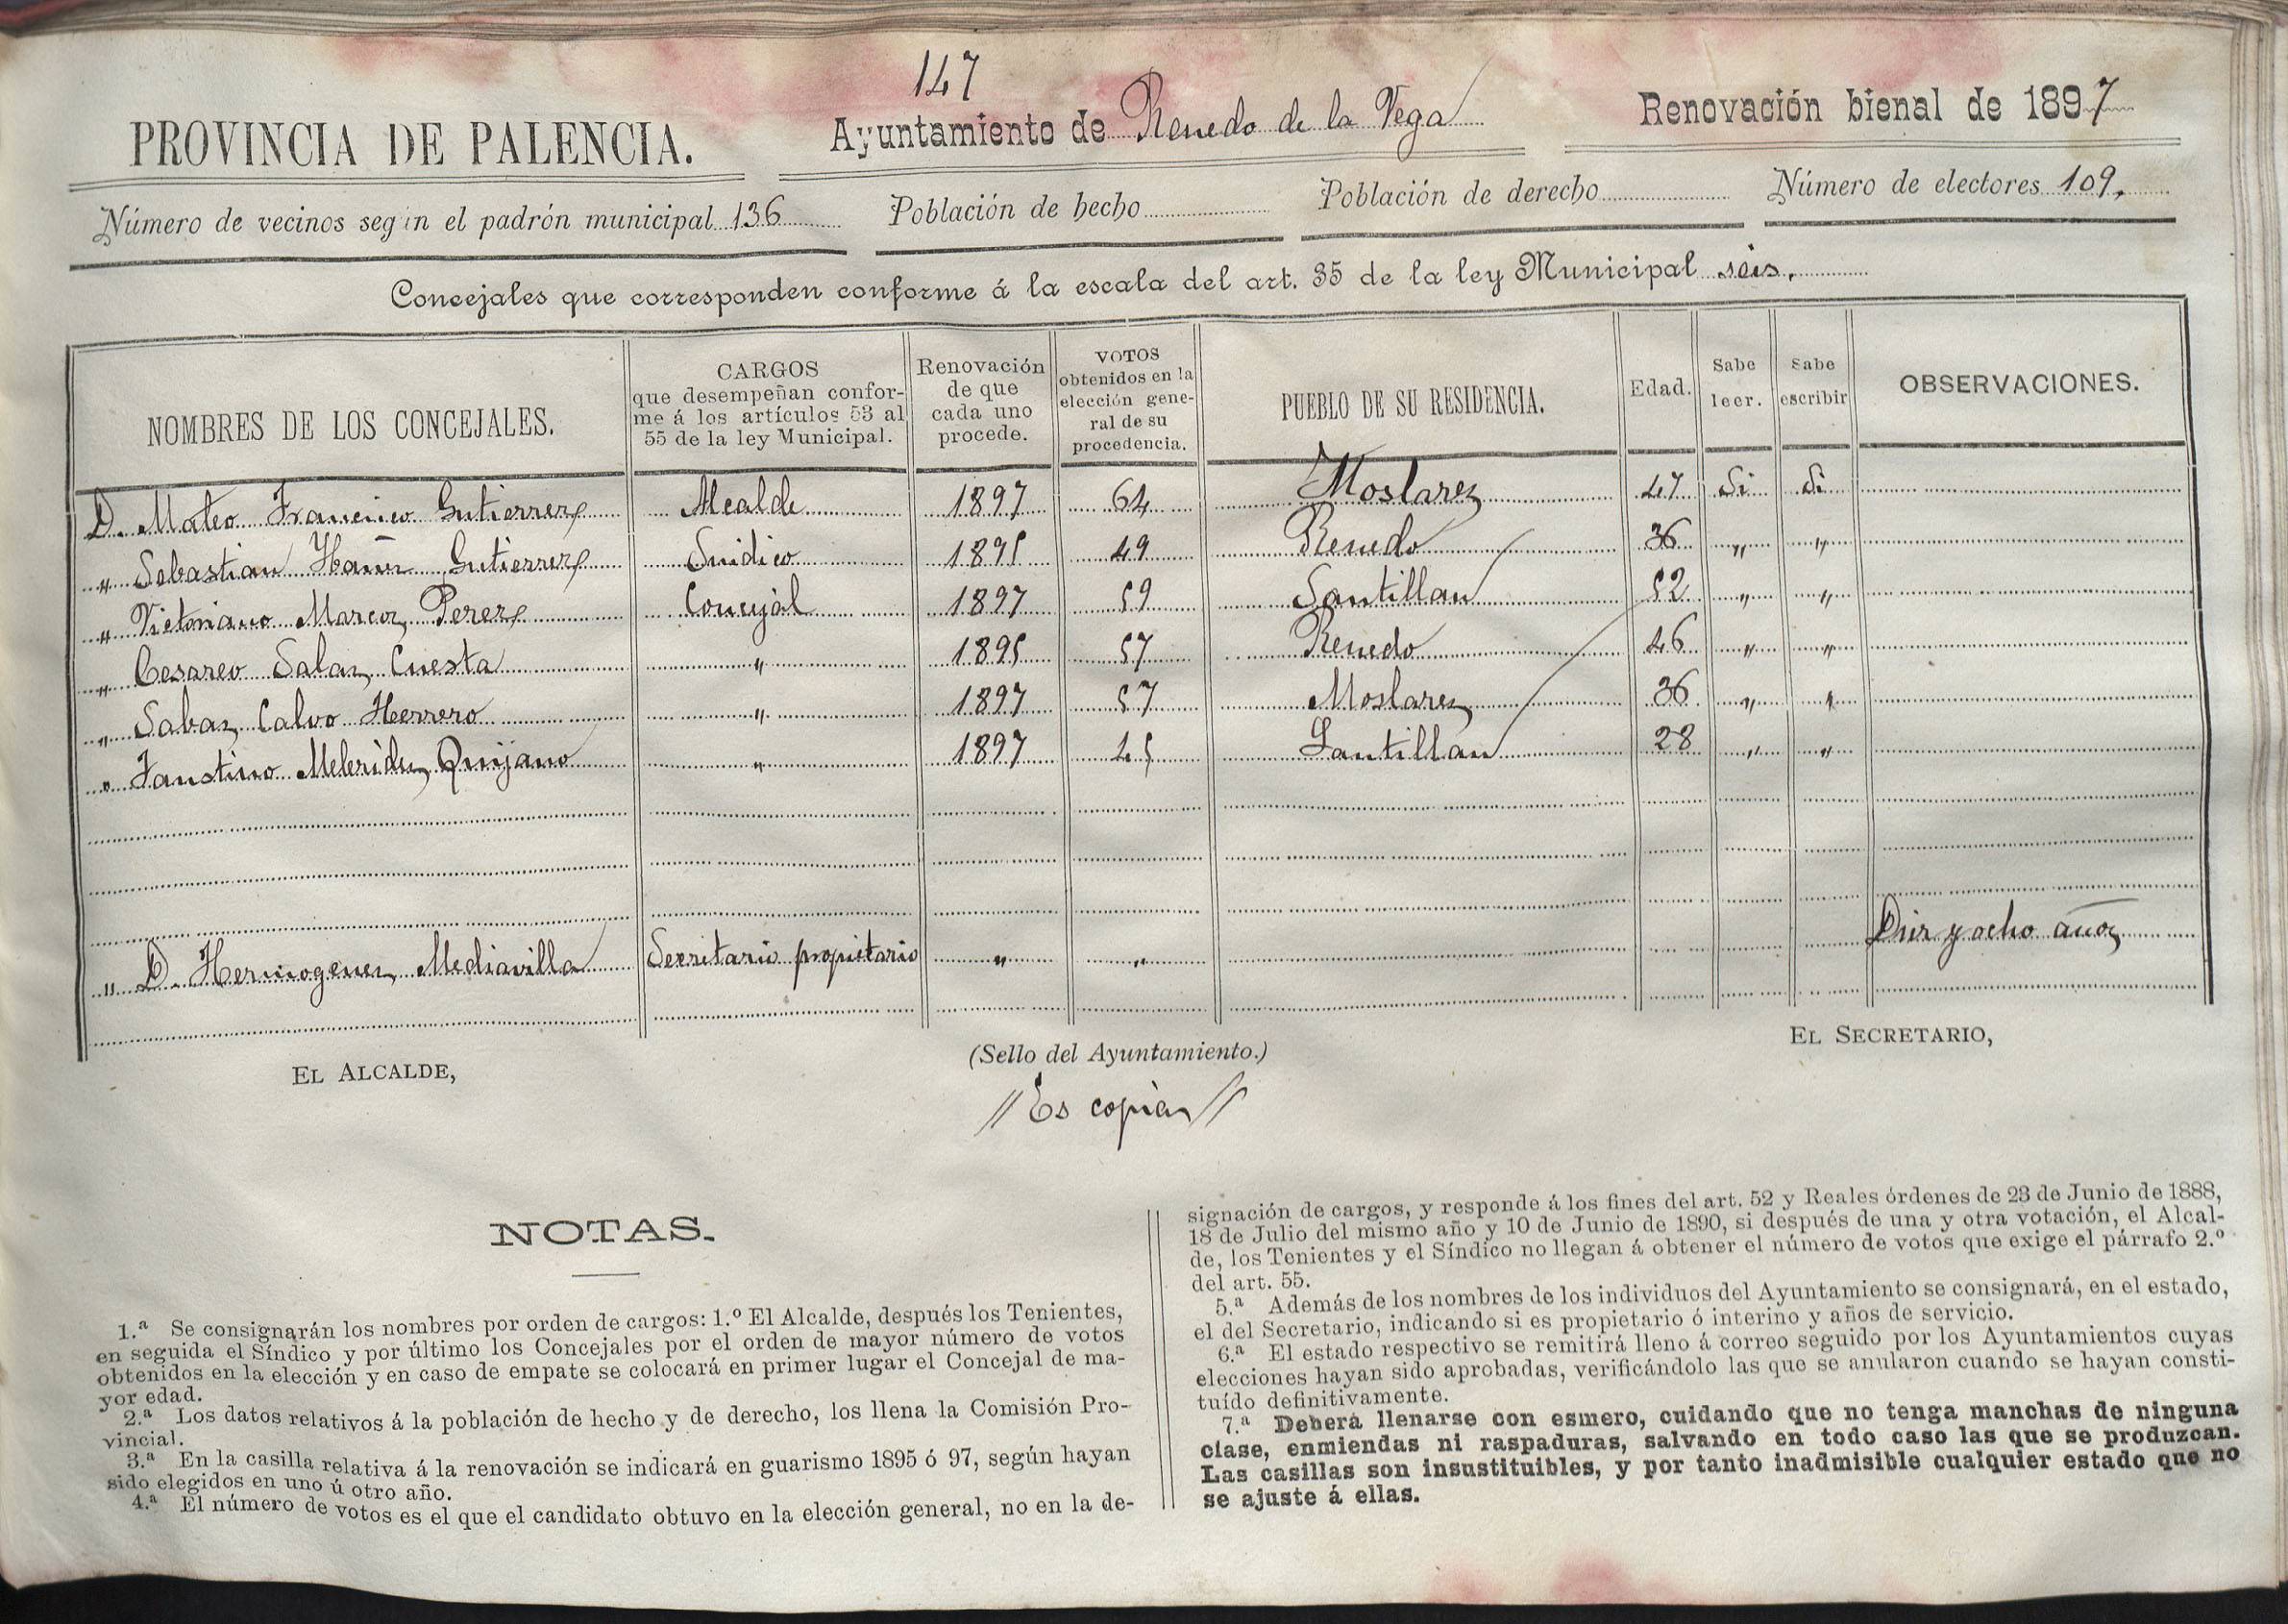 147
PROVINCIA DE PALENCIA. Ayuntamiento de Renedo de la Vega Renovación bienal de 1897
Número de vecinos según el padrón municipal 136 Población de hecho Población de derecho Número de electores 109.
Concejales que corresponden conforme á la escala del art. 35 de la ley Municipal seis.
NOMBRES DE LOS CONCEJALES. CARGOS que desempeñan confor- me á los artículos 53 al 55 de la ley Municipal. Renovación de que cada uno procede. VOTOS obtenidos en la elección gene- ral de su procedencia. PUEBLO DE SU RESIDENCIA. Edad. Sabe leer. Sabe escribir OBSERVACIONES.
D. Mateo Francisco Gutierrez Alcalde 1897 64 Moslares 47 Si Si
„ Sebastian Gutierrez Sindico 1895 49 Renedo 36 „ „
„ Victoriano Marcos Perez Concejal 1897 59 Santillan 52 „ „
„ Cesareo Salas Cuesta „ 1895 57 Renedo 46 „ „
„ Sabas Calvo Herrero „ 1897 57 Moslares 36 „ „
„ Faustino Melendez Quijano „ 1897 45 Santillan 28 „ „
„ D. Hermogenes Mediavilla Secretario propietario „ „ Diez y ocho años
EL ALCALDE, (Sello del Ayuntamiento.) EL SECRETARIO,
// Es copia //
NOTAS.
1.ª Se consignarán los nombres por orden de cargos: 1.º El Alcalde, después los Tenientes,
en seguida el Síndico y por último los Concejales por el orden de mayor número de votos
obtenidos en la elección y en caso de empate se colocará en primer lugar el Concejal de ma-
yor edad.
2.ª Los datos relativos á la población de hecho y de derecho, los llena la Comisión Pro-
vincial.
3.ª En la casilla relativa á la renovación se indicará en guarismo 1895 ó 97, según hayan
sido elegidos en uno ú otro año.
4.ª El número de votos es el que el candidato obtuvo en la elección general, no en la de-
signación de cargos, y responde á los fines del art. 52 y Reales órdenes de 23 de Junio de 1888,
18 de Julio del mismo año y 10 de Junio de 1890, si después de una y otra votación, el Alcal-
de, los Tenientes y el Síndico no llegan á obtener el número de votos que exige el párrafo 2.º
del art. 55.
5.ª Además de los nombres de los individuos del Ayuntamiento se consignará, en el estado,
el del Secretario, indicando si es propietario ó interino y años de servicio.
6.ª El estado respectivo se remitirá lleno á correo seguido por los Ayuntamientos cuyas
elecciones hayan sido aprobadas, verificándolo las que se anularon cuando se hayan consti-
tuído definitivamente.
7.ª Deberá llenarse con esmero, cuidando que no tenga manchas de ninguna
clase, enmiendas ni raspaduras, salvando en todo caso las que se produzcan.
Las casillas son insustituibles, y por tanto inadmisible cualquier estado que no
se ajuste á ellas.